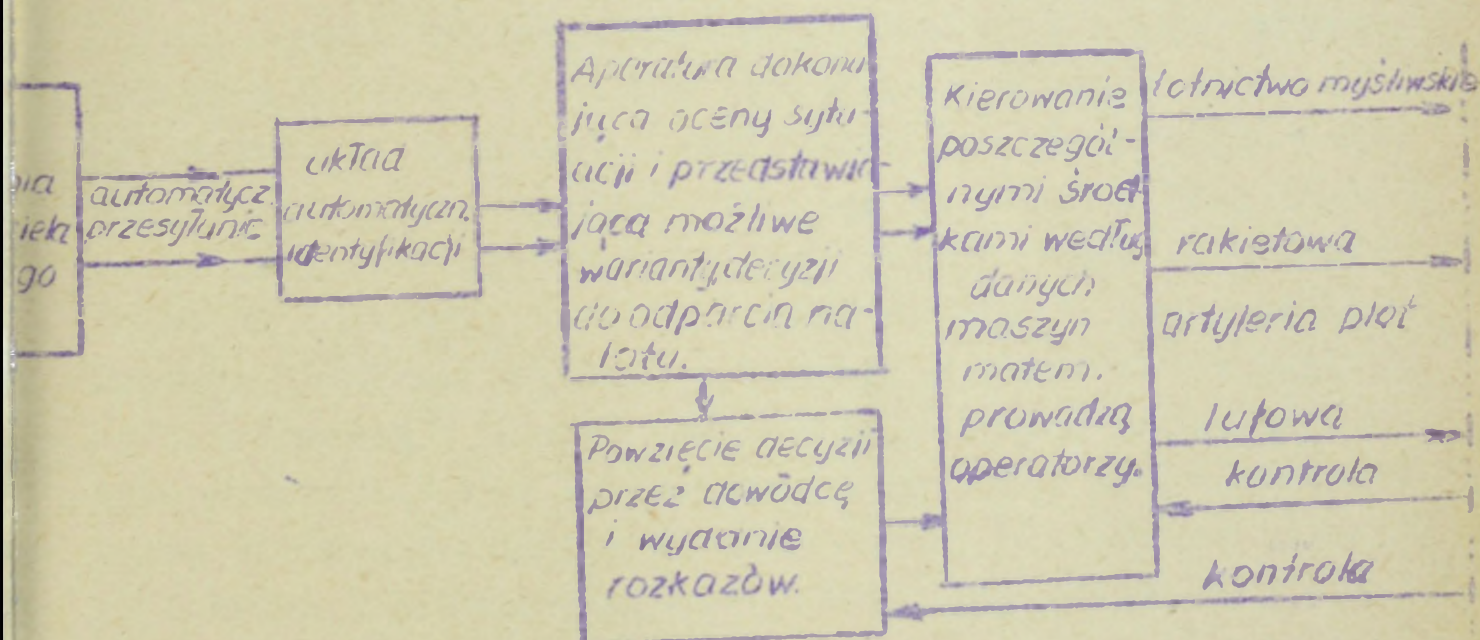 go
automatycz.
przesyłanie
układ
automatyczn.
identyfikacji
Aparatura dokonu
jąca oceny sytu-
acji i przedstawia-
jąca możliwe
warianty decyzji
do odparcia na-
lotu.
Powzięcie decyzji
przez dowódcę
i wydanie
rozkazów.
Kierowanie
poszczegól-
nymi środ-
kami według
danych
maszyn
matem.
prowadzą
operatorzy.
lotnictwo myśliwskie
rakietowa
artyleria plot
lufowa
kontrola
kontrola